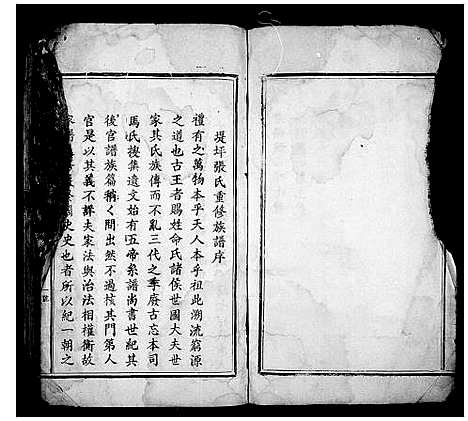 堤坪張氏重修族譜序
禮有之萬物本乎天人本乎祖此溯流窮源
之道也古王者賜姓命氏諸侯世國大夫世
家其氏族傳而不亂三代之季廢古忘本司
馬氏搜集遺文始有五帝系譜尚書世紀其
後官譜族篇稍〻間出然不過核其門第人
官是以其義不詳夫家法與治法相權衡故
家譜國史史也者所以紀一朝之